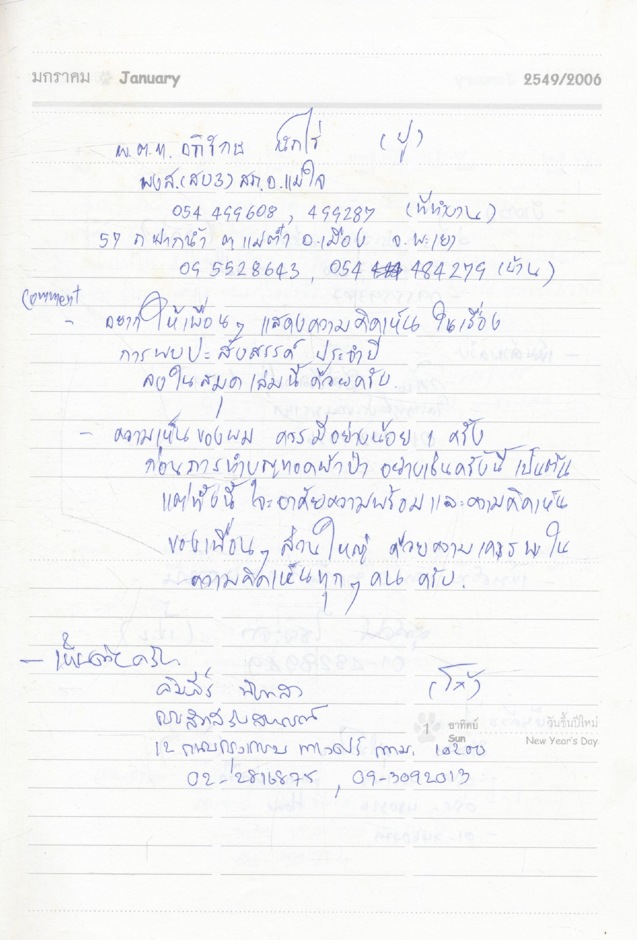 มกราคม January 2549/2006
พ.ต.ท. (ปู)
พงส.(สบ3) สภ.อ.แม่ใจ
054 499608, 499287 (ที่ทำงาน)
57 ถ ฟากน้ำ ต แม่ต๋ำ อ.เมือง จ.พะเยา
09 5528643, 054 484279 (บ้าน)
Comment
- อยากให้เพื่อนๆ แสดงความคิดเห็น ในเรื่อง
การพบปะ สังสรรค์ ประจำปี
ลงในสมุดเล่มนี้ด้วยครับ
- ความเห็นของผม ควรมีอย่างน้อย 1 ครั้ง
ก่อนการทำบุญทอดผ้าป่า อย่างเช่นครั้งนี้ เป็นต้น
แต่ทั้งนี้ ใจะอาศัยความพร้อม และความคิดเห็น
ของเพื่อนๆ ส่วนใหญ่ ด้วยความเคารพใน
ความคิดเห็นทุกๆ คน ครับ.
- เห็นด้วยครับ
(โก้)
1 อาทิตย์ วันขึ้นปีใหม่
Sun New Year's Day
12 กทม. 10200
02-2816875, 09-3092013